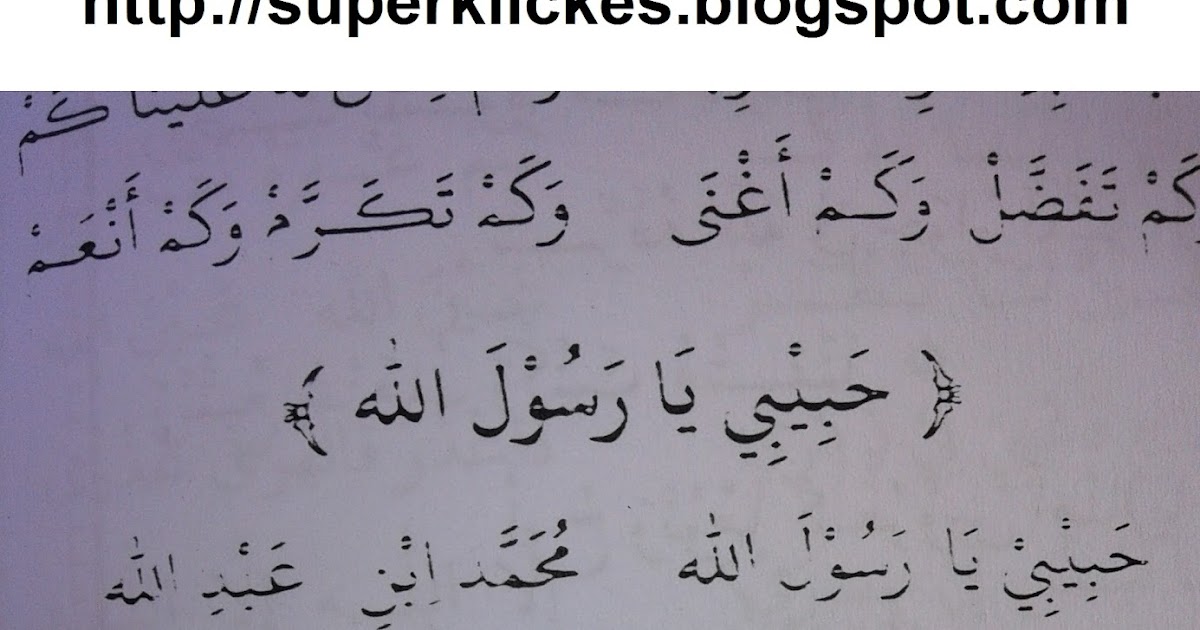 http://superklickes.blogspot.com
عَلَيْنَا كَمْ
كَمْ تَفَضَّلْ وَكَمْ أَغْنَى وَكَمْ تَكَرَّمْ وَكَمْ أَنْعَمْ
﴿ حَبِيْبِي يَا رَسُوْلَ اللّٰه ﴾
حَبِيْبِيْ يَا رَسُوْلَ اللّٰه مُحَمَّد اِبْنِ عَبْدِ اللّٰه